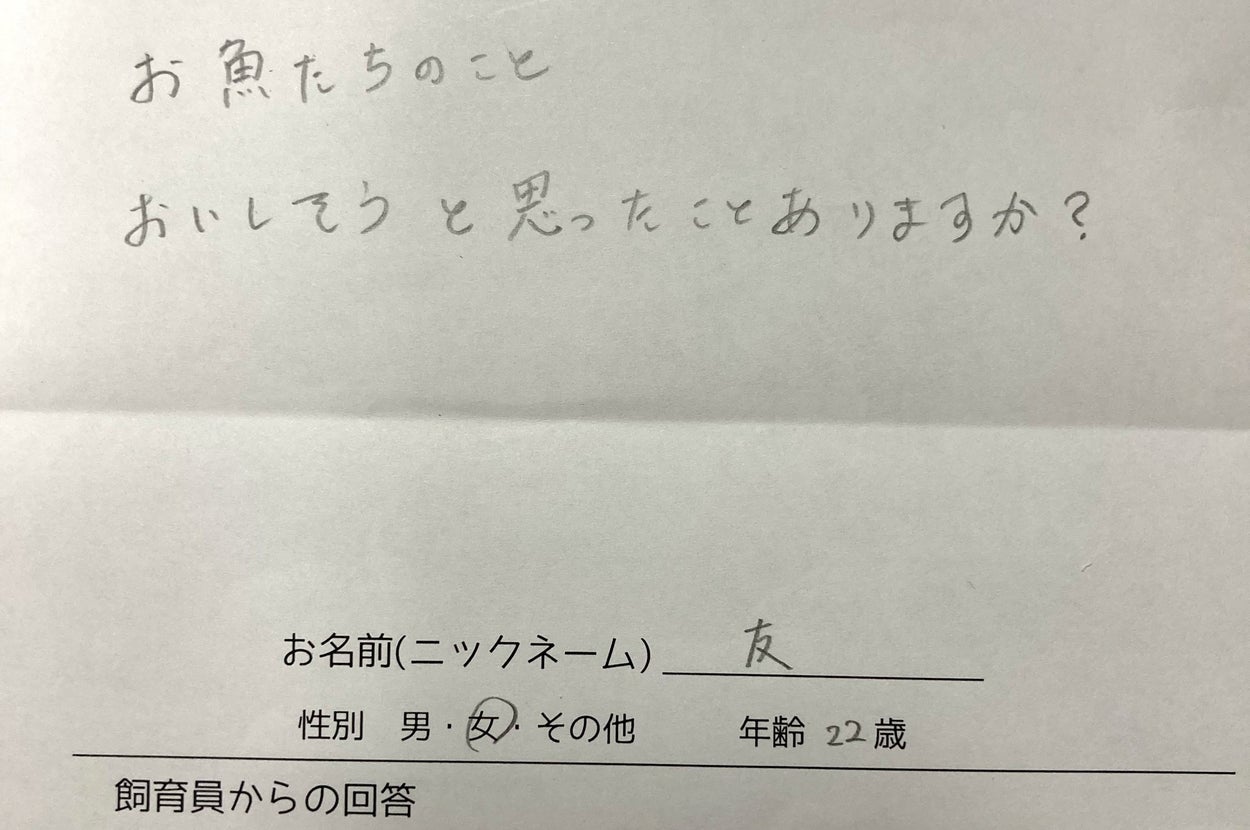 お魚たちのこと
おいしそうと思ったことありますか?
お名前(ニックネーム) 友
性別 男・女・その他 年齢 22歳
飼育員からの回答